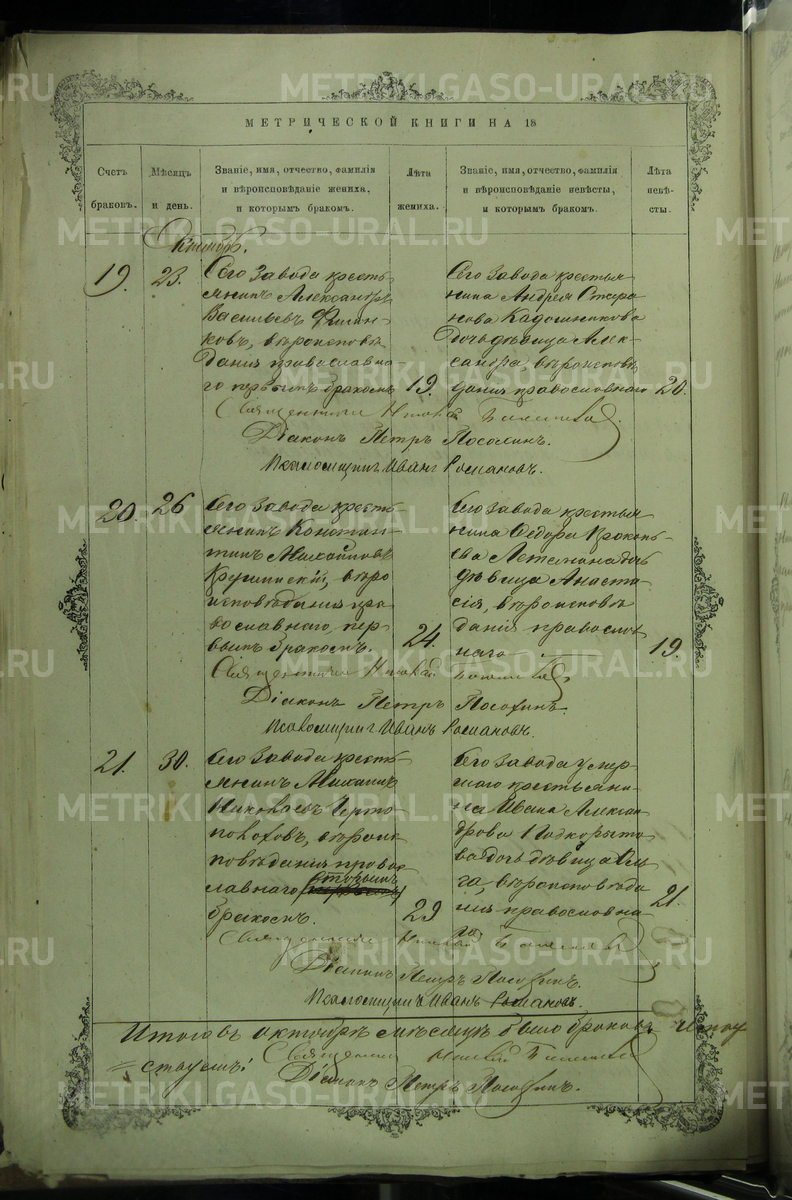 МЕТРИЧЕСКОЙ КНИГИ НА 18
Счетъ
браковъ.
Мѣсяцъ
и день.
Званіе, имя, отчество, фамилія
и вѣроисповѣданіе жениха,
и которымъ бракомъ.
Лѣта
жениха.
Званіе, имя, отчество, фамилія
и вѣроисповѣданіе невѣсты,
и которымъ бракомъ.
Лѣта
невѣ-
сты.
Октябрь.
19.
23.
Сего завода кресть-
янинъ Александръ
Васильевъ
ковъ, вѣроисповѣ
данія православна-
го первымъ бракомъ
19.
Сего завода крестья
нина Андрея Стефа
нова Кадошникова
дочь дѣвица Алек-
сандра, вѣроисповѣ
данія православнаго
20.
Священникъ Николай
Діаконъ Петръ Посохинъ.
Псаломщикъ Иванъ Романовъ.
20.
26
Сего завода кресть-
янинъ Констан-
тинъ Михайловъ
вѣро
исповѣданія пра
вославнаго, пер-
вымъ бракомъ.
24.
Сего завода крестья
нина Ѳедора Прокопь-
ева дочь
дѣвица Анаста-
сія, вѣроисповѣ
данія православ
наго
19.
Священникъ Николай
Діаконъ Петръ Посохинъ.
Псаломщикъ Иванъ Романовъ.
21.
30.
Сего завода кресть-
янинъ Михаилъ
Николаевъ Черто-
полоховъ, вѣроис
повѣданія право
славнаго вторымъ
бракомъ.
29
Сего завода умер-
шаго крестьяни-
на Ивана Алексан
дрова Подкорыто
ва дочь дѣвица Оль
га, вѣроисповѣда
нія православна-
го
21.
Священникъ Николай
Діаконъ Петръ Посохинъ.
Псаломщикъ Иванъ Романовъ.
Итого въ октябрѣ мѣсяцѣ было браковъ
Священникъ Николай
Діаконъ Петръ Посохинъ.
METRIKI.GASO-URAL.RU